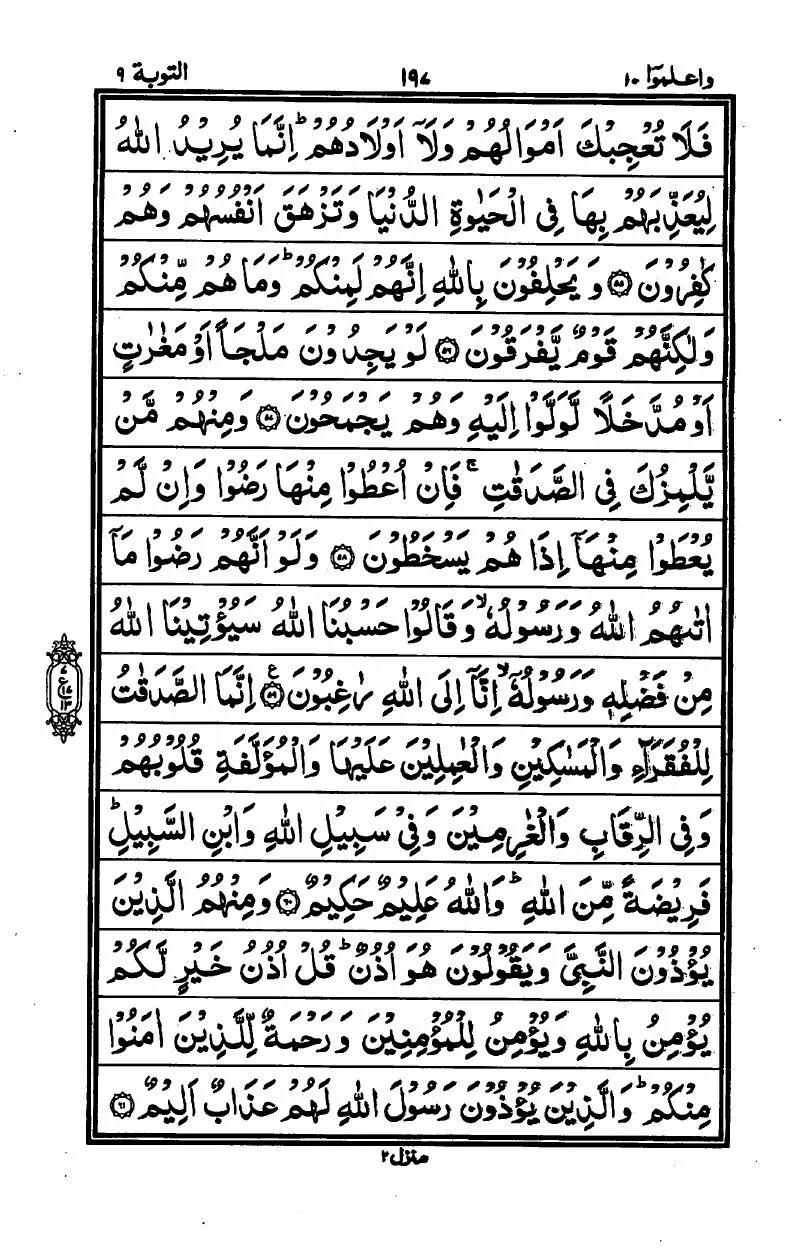 واعلموٓا ١٠ ١٩٧ التوبة ٩
فَلَا تُعْجِبْكَ اَمْوَالُهُمْ وَلَآ اَوْلَادُهُمْ ؕ اِنَّمَا يُرِيْدُ اللّٰهُ
لِيُعَذِّبَهُمْ بِهَا فِى الْحَيٰوةِ الدُّنْيَا وَتَزْهَقَ اَنْفُسُهُمْ وَهُمْ
كٰفِرُوْنَ ﴿۵۵﴾ وَ يَحْلِفُوْنَ بِاللّٰهِ اِنَّهُمْ لَمِنْكُمْ ؕ وَمَا هُمْ مِّنْكُمْ
وَلٰكِنَّهُمْ قَوْمٌ يَّفْرَقُوْنَ ﴿۵۶﴾ لَوْ يَجِدُوْنَ مَلْجَاً اَوْ مَغٰرٰتٍ
اَوْ مُدَّخَلًا لَّوَلَّوْا اِلَيْهِ وَهُمْ يَجْمَحُوْنَ ﴿۵۷﴾ وَمِنْهُمْ مَّنْ
يَّلْمِزُكَ فِى الصَّدَقٰتِ ۚ فَاِنْ اُعْطُوْا مِنْهَا رَضُوْا وَاِنْ لَّمْ
يُعْطَوْا مِنْهَآ اِذَا هُمْ يَسْخَطُوْنَ ﴿۵۸﴾ وَلَوْ اَنَّهُمْ رَضُوْا مَآ
اٰتٰىهُمُ اللّٰهُ وَرَسُوْلُهٗ ۙ وَقَالُوْا حَسْبُنَا اللّٰهُ سَيُؤْتِيْنَا اللّٰهُ
مِنْ فَضْلِهٖ وَرَسُوْلُهٗٓ ۙ اِنَّآ اِلَى اللّٰهِ رٰغِبُوْنَ ﴿۵۹﴾ ع اِنَّمَا الصَّدَقٰتُ
لِلْفُقَرَآءِ وَالْمَسٰكِيْنِ وَالْعٰمِلِيْنَ عَلَيْهَا وَالْمُؤَلَّفَةِ قُلُوْبُهُمْ
وَفِى الرِّقَابِ وَالْغٰرِمِيْنَ وَفِىْ سَبِيْلِ اللّٰهِ وَابْنِ السَّبِيْلِ ؕ
فَرِيْضَةً مِّنَ اللّٰهِ ؕ وَاللّٰهُ عَلِيْمٌ حَكِيْمٌ ﴿۶۰﴾ وَمِنْهُمُ الَّذِيْنَ
يُؤْذُوْنَ النَّبِىَّ وَيَقُوْلُوْنَ هُوَ اُذُنٌ ؕ قُلْ اُذُنُ خَيْرٍ لَّكُمْ
يُؤْمِنُ بِاللّٰهِ وَيُؤْمِنُ لِلْمُؤْمِنِيْنَ وَرَحْمَةٌ لِّلَّذِيْنَ اٰمَنُوْا
مِنْكُمْ ؕ وَالَّذِيْنَ يُؤْذُوْنَ رَسُوْلَ اللّٰهِ لَهُمْ عَذَابٌ اَلِيْمٌ ﴿۶۱﴾
منزل ٢